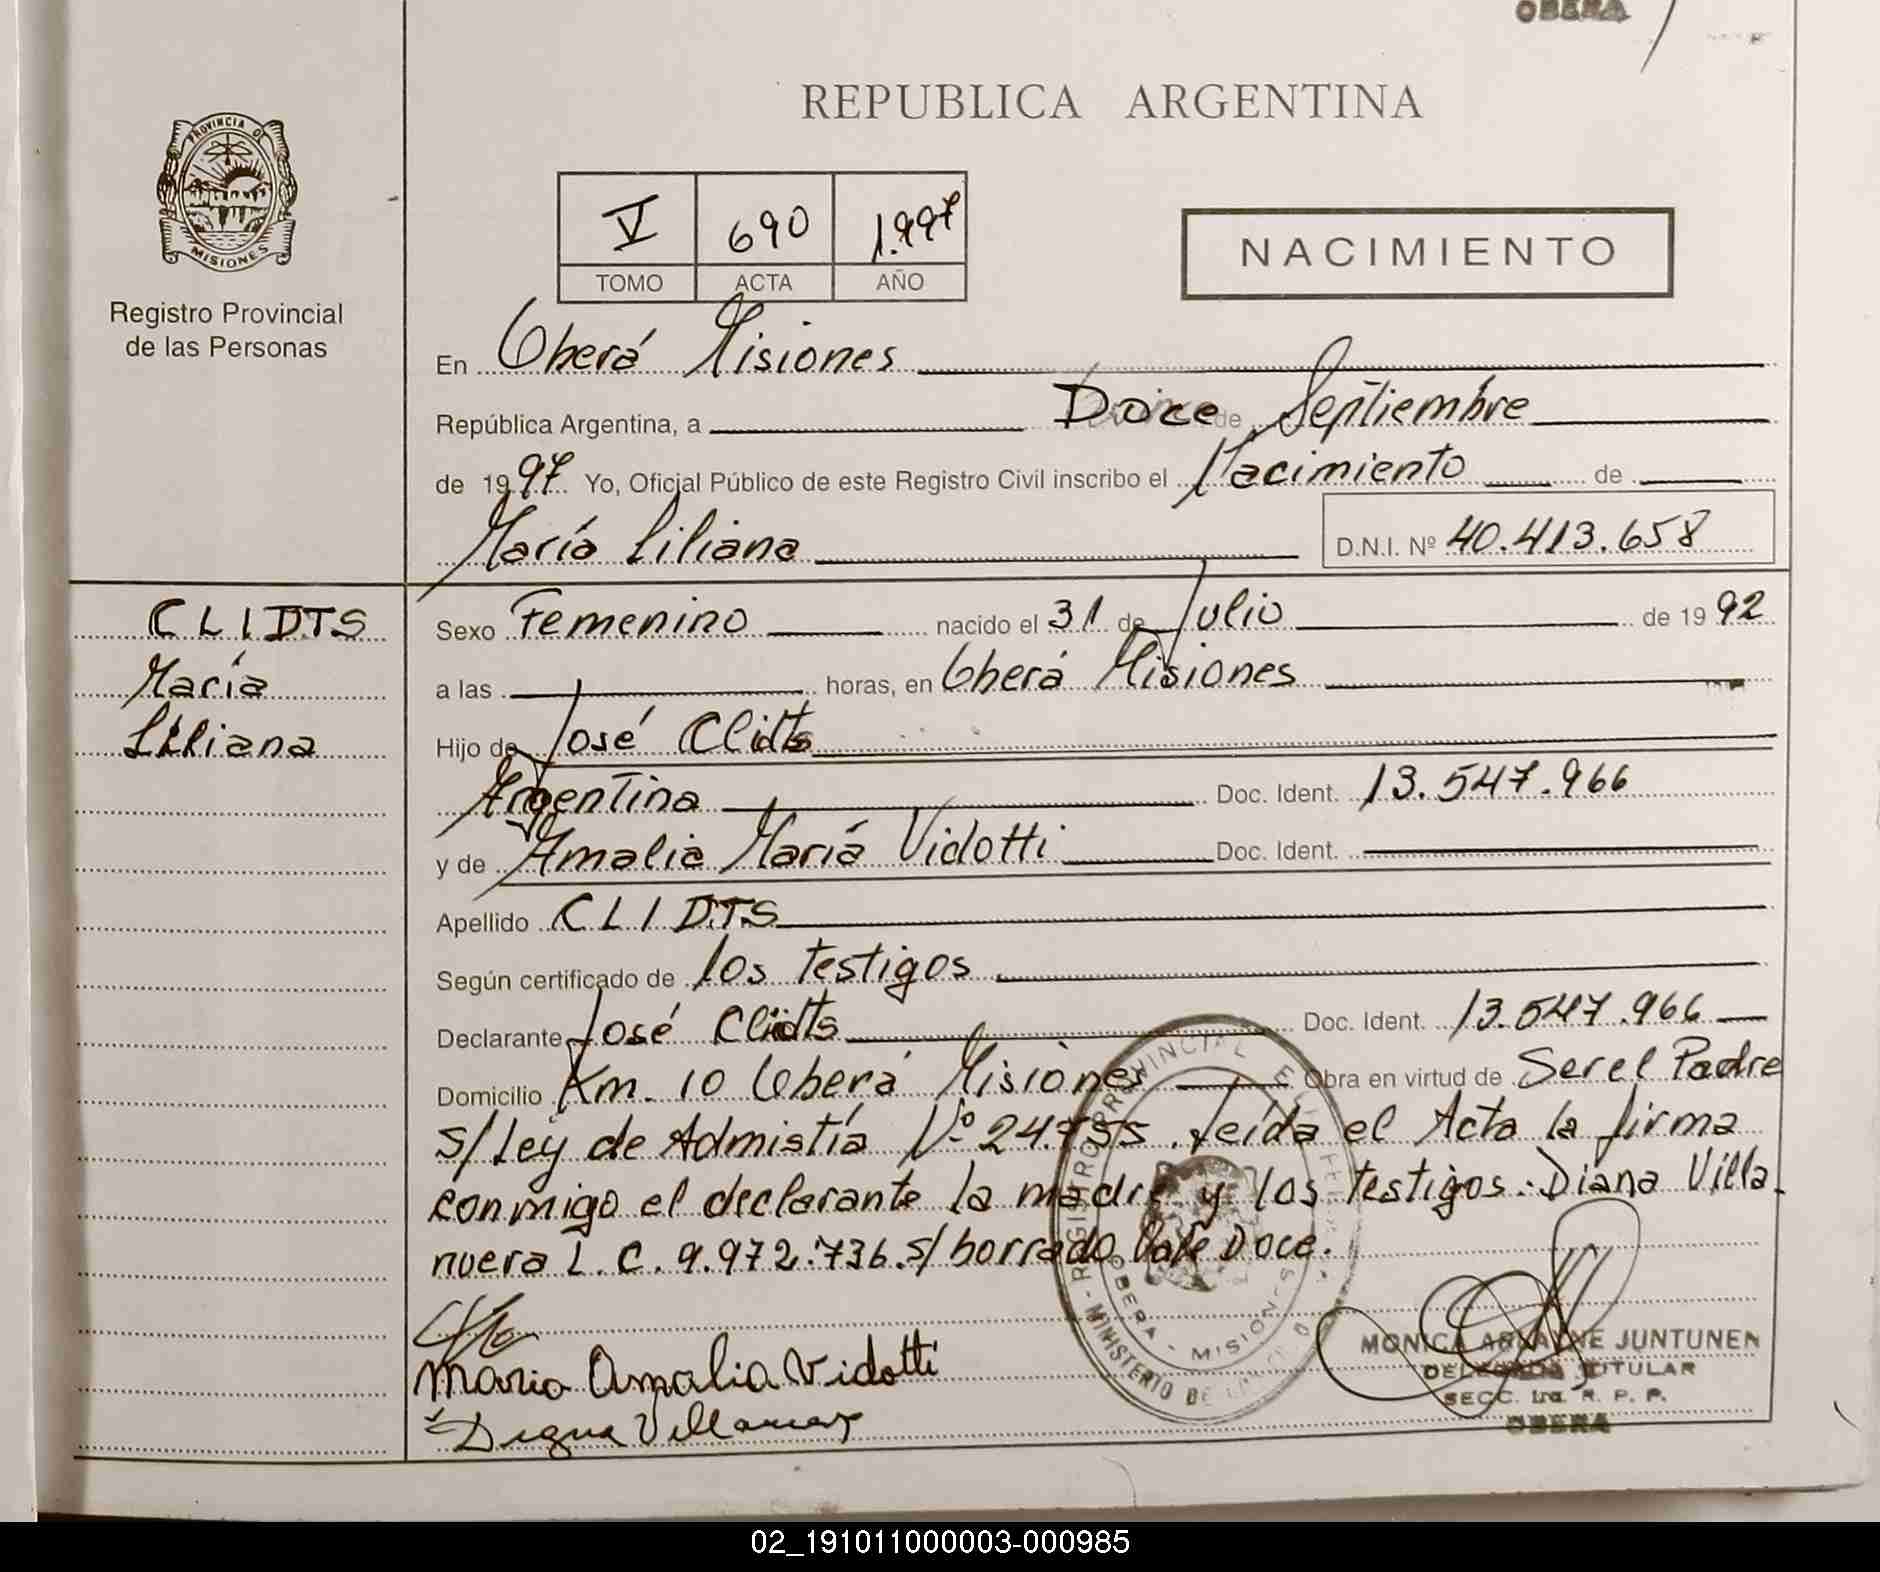 OBERA
REPUBLICA ARGENTINA
PROVINCIA DE
MISIONES
Registro Provincial
de las Personas
V 690 1.997
TOMO ACTA AÑO
NACIMIENTO
En Oberá Misiones
República Argentina, a Doce de Septiembre
de 1997 Yo, Oficial Público de este Registro Civil inscribo el Nacimiento de
María Liliana D.N.I. Nº 40.413.658
CLIDTS
María
Liliana
Sexo Femenino nacido el 31 de Julio de 1992
a las horas, en Oberá Misiones
Hijo de José Clidts
Argentina Doc. Ident. 13.547.966
y de Amalia María Vidotti Doc. Ident.
Apellido CLIDTS
Según certificado de los testigos
Declarante José Clidts Doc. Ident. 13.547.966
Domicilio Km. 10 Oberá Misiones Obra en virtud de Ser el Padre
s/Ley de Admistía Nº 24.755. Leída el Acta la firma
conmigo el declarante la madre y los testigos: Diana Villa
nuera L.C. 9.972.736. s/borrado Vale Doce.
REGISTRO PROVINCIAL
OBERA - MISIONES
MINISTERIO DE
Maria Amalia Vidotti
MONICA JUNTUNEN
TITULAR
SECC. 1ra. R. P. P.
OBERA
02_191011000003-000985